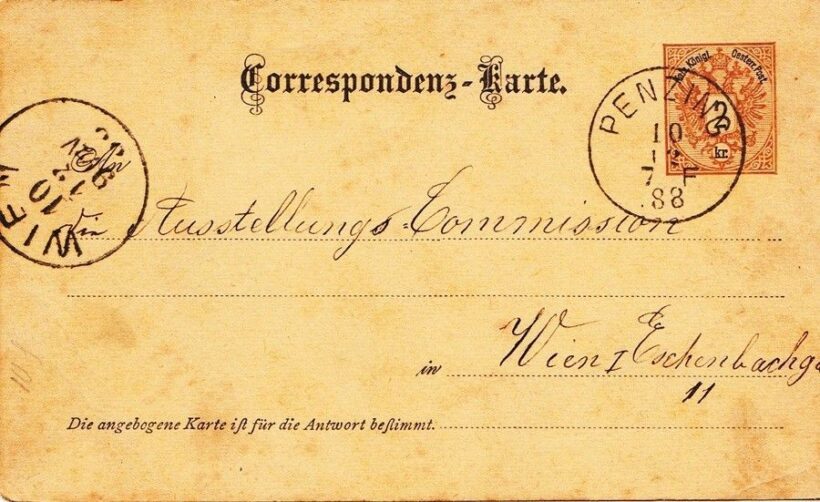 Correspondenz-Karte.
Kais. Königl. Oesterr. Post.
2
kr.
PENZING
10
12
7 F
88
WIEN
An
die Ausstellungs-Commission
Wien I Eschenbachg
in
11
Die angebogene Karte iſt für die Antwort beſtimmt.